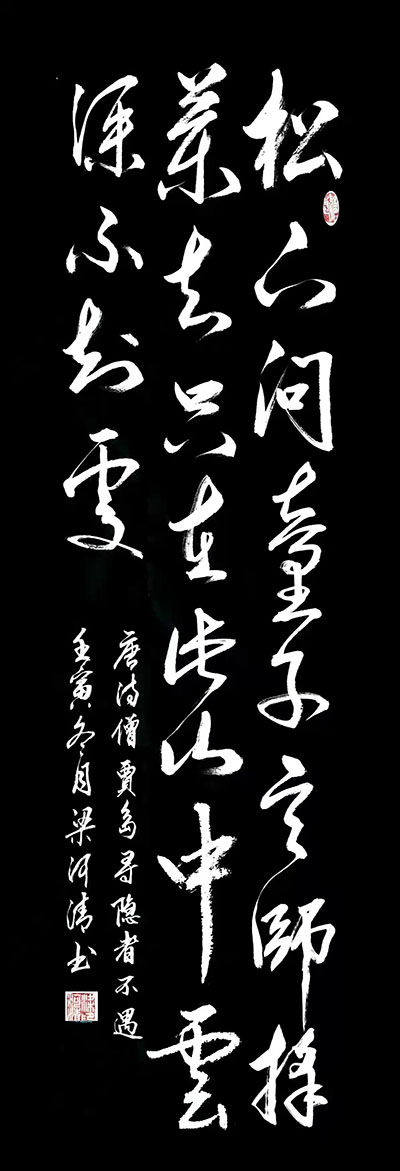 松下问童子言師採
薬去只在此山中雲
深不知處
唐诗僧賈島尋隐者不遇
壬寅冬月梁河清书